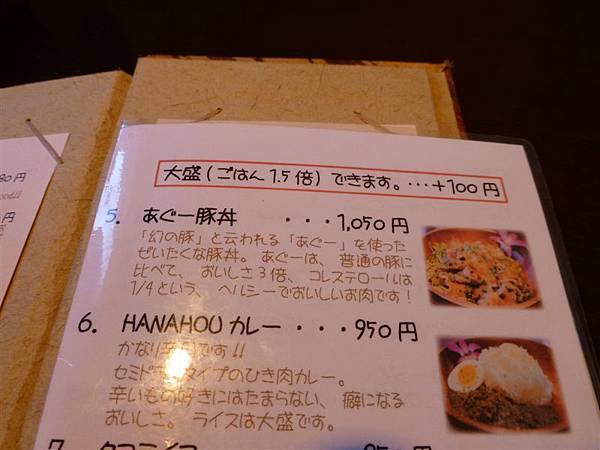 大盛(ごはん1.5倍)できます。・・・+100円
5. あぐー豚丼 ・・・1,050円
「幻の豚」と云われる「あぐー」を使った
ぜいたくな豚丼。あぐーは、普通の豚に
比べて、おいしさ3倍、コレステロールは
1/4という、ヘルシーでおいしいお肉です!
6. HANAHOUカレー・・・950円
かなり辛口です!!
セミドライタイプのひき肉カレー。
辛いもの好きにはたまらない、癖になる
おいしさ。ライスは大盛です。
7. タコライス
円
円